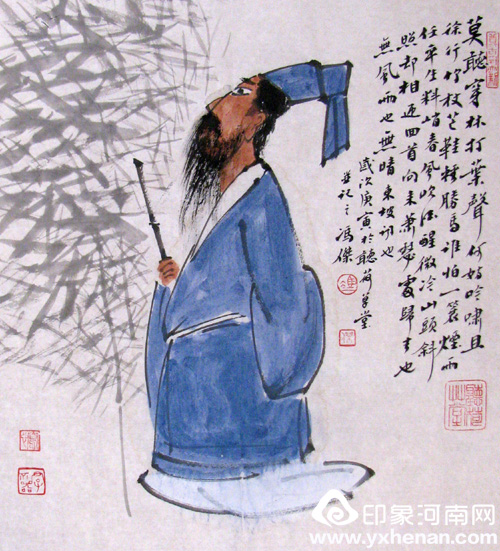 莫聽穿林打葉聲何妨吟嘯且
徐行竹杖芒鞋輕勝馬誰怕一蓑煙雨
任平生料峭春風吹酒醒微冷山頭斜
照却相迎回首向来蕭瑟處歸去也
無風雨也無晴東坡詞也
歲次庚寅於聽荷草堂
記之馮傑
印象河南网
www.yxhenan.com